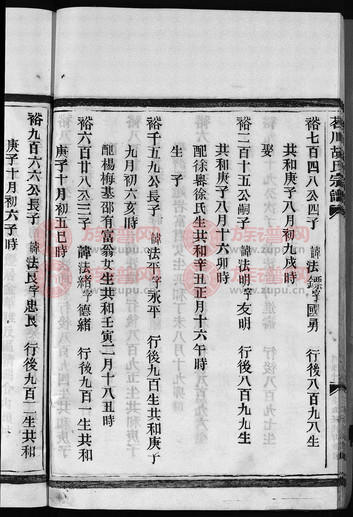 裕七百四八公四子 諱法鏢字國勇 行後八百九八生
共和庚子八月初九戌時
娶
裕二百十五公嗣子 諱法明字友明 行後八百九九生
共和庚子八月十六卯時
配徐㠘徐氏生共和辛丑正月十六午時
生 子
裕千五九公長子 諱法平字永平 行後九百生共和庚子
九月初六亥時
配楊梅基邵有富翁女生共和壬寅二月十八丑時
裕六百廿八公三子 諱法緒字德緒 行後九百一生共和
庚子十月初五巳時
裕九百六六公長子 諱法良字忠良 行後九百二生共和
庚子十月初六子時
胡氏宗譜
族譜网
www.zupu.cn